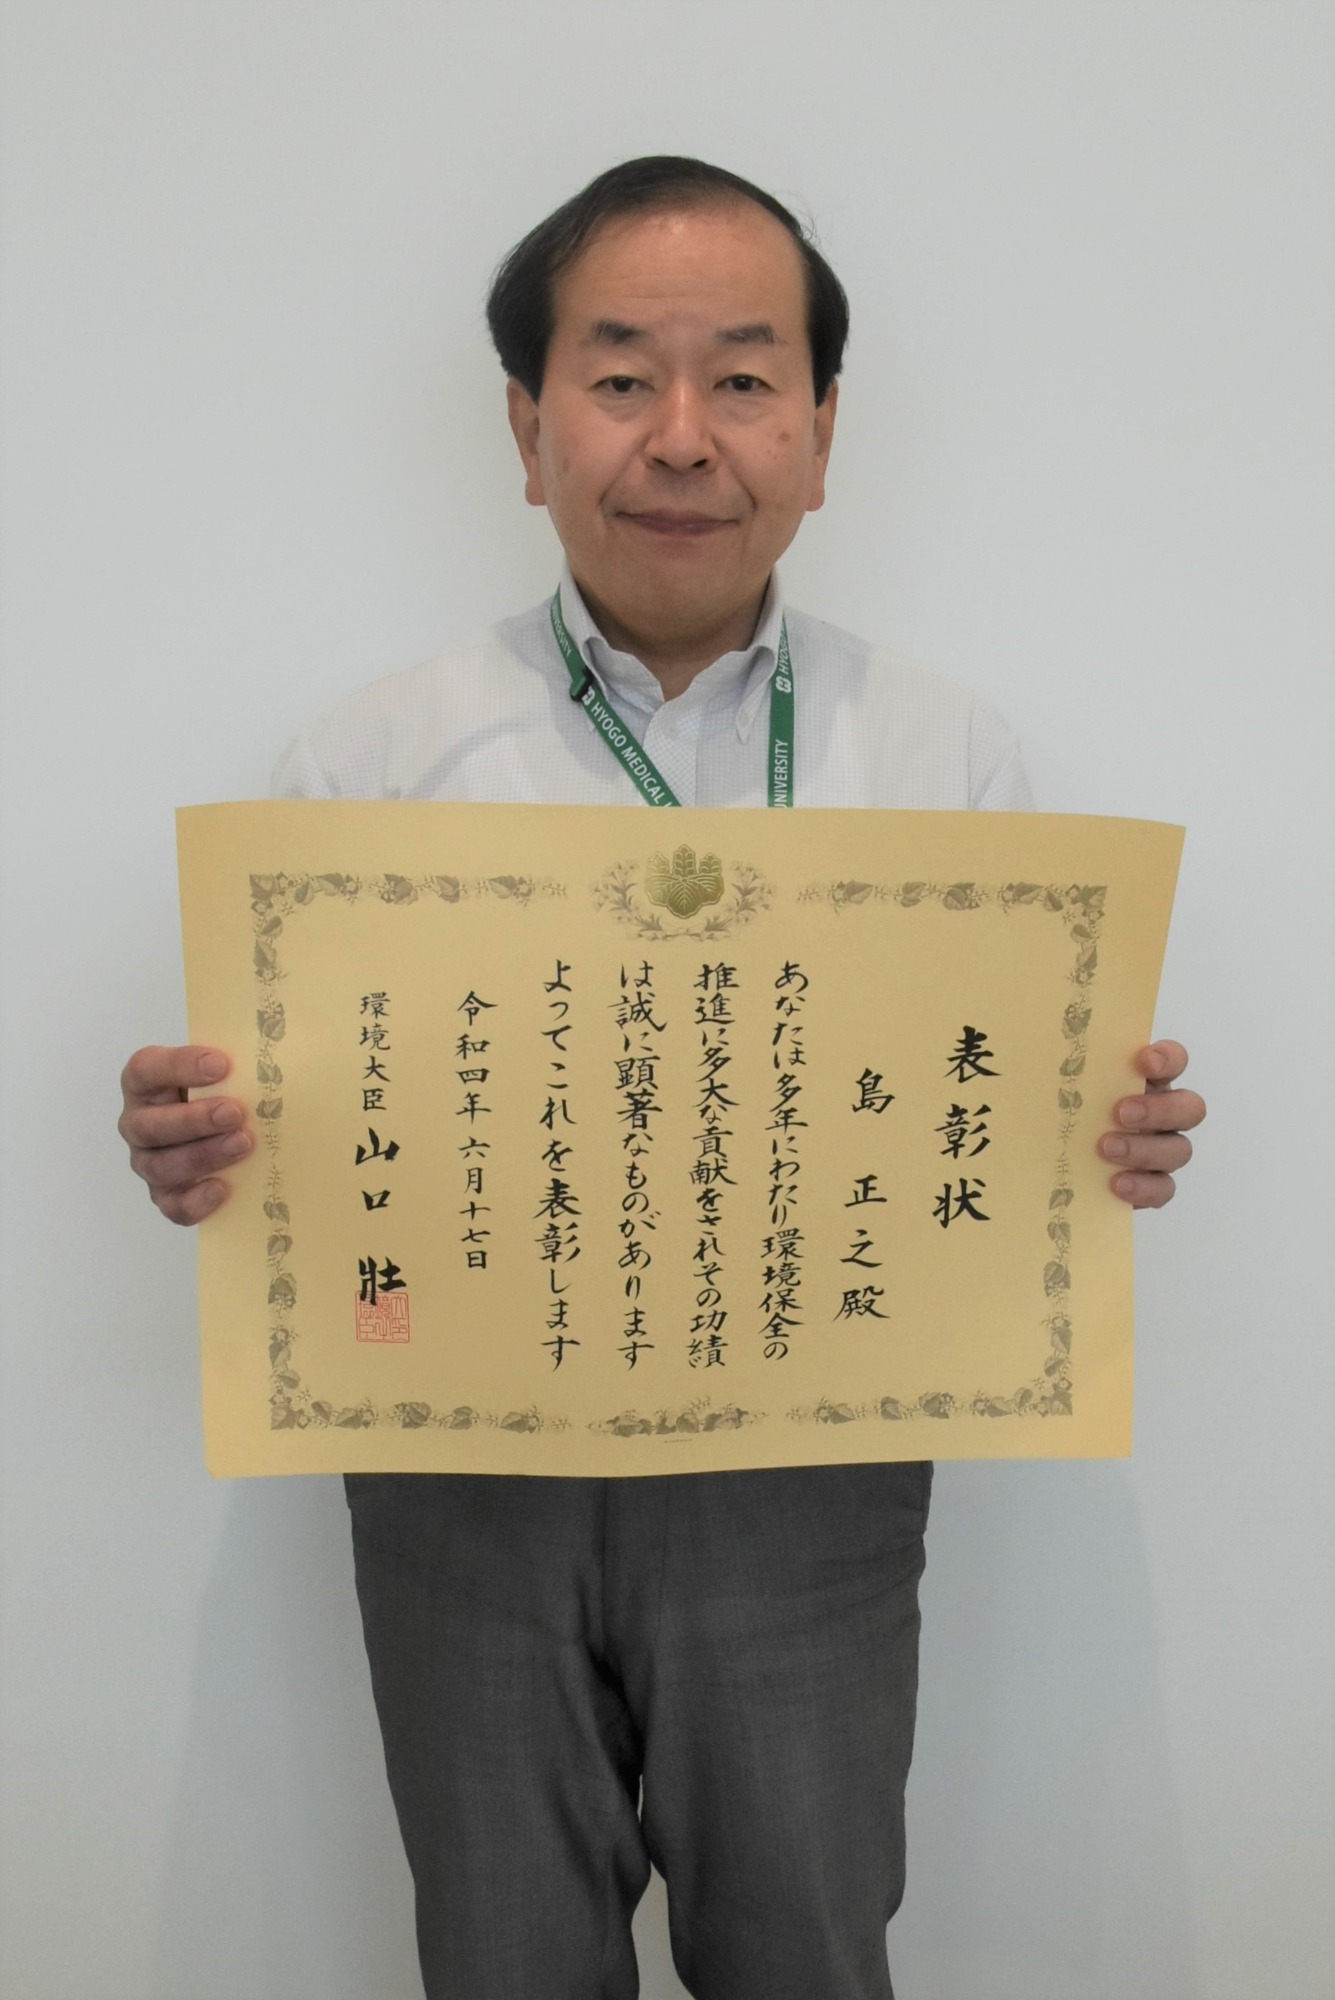 UNIVERSITY
HYOGO MEDICAL
HYOGO
UNIVERSITY
表彰状
島 正之殿
あなたは多年にわたり環境保全の
推進に多大な貢献をされその功績
は誠に顕著なものがあります
よってこれを表彰します
令和四年六月十七日
環境大臣 山口 壯